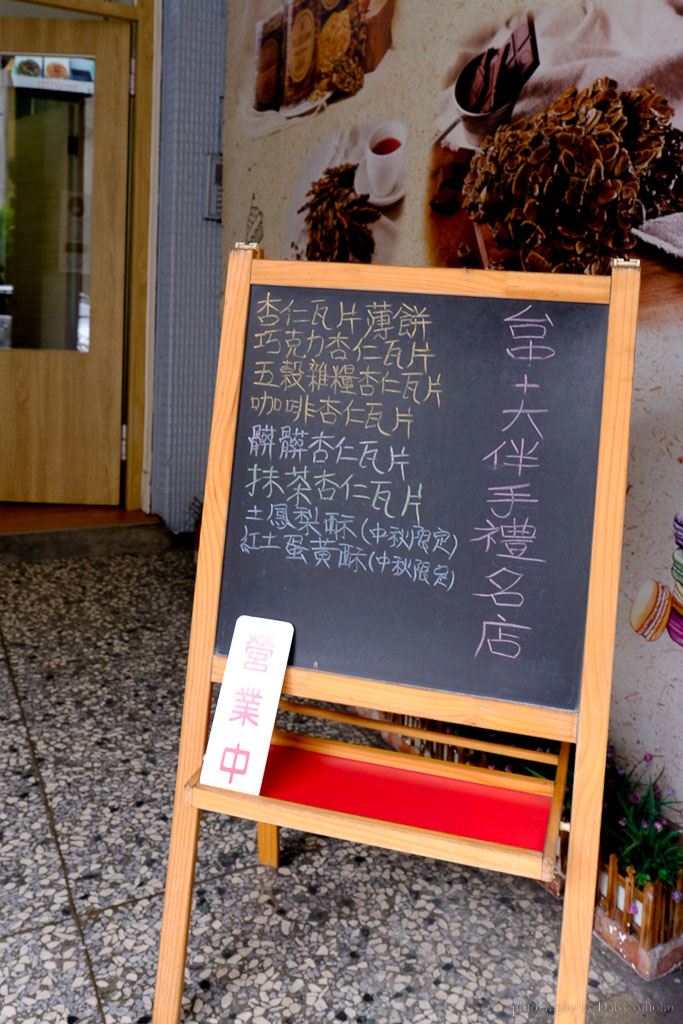 杏仁瓦片薄餅
巧克力杏仁瓦片
五穀雜糧杏仁瓦片
咖啡杏仁瓦片
髒髒杏仁瓦片
抹茶杏仁瓦片
土鳳梨酥(中秋限定)
紅土蛋黃酥(中秋限定)
台中十大伴手禮名店
營業中